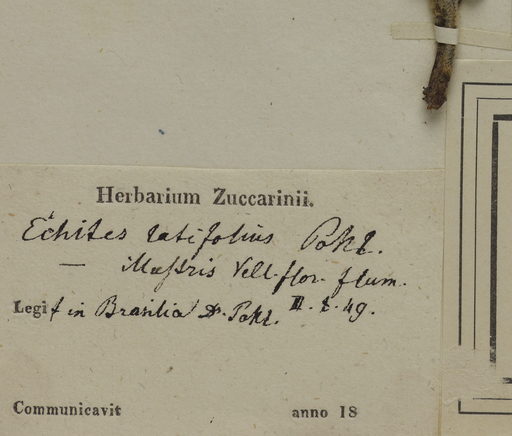 Herbarium Zuccarinii.
Echites latifolius Pohl.
— illustris Vell. flor. flum.
Legit in Brasilia Dr. Pohl. II. t. 49.
Communicavit anno 18